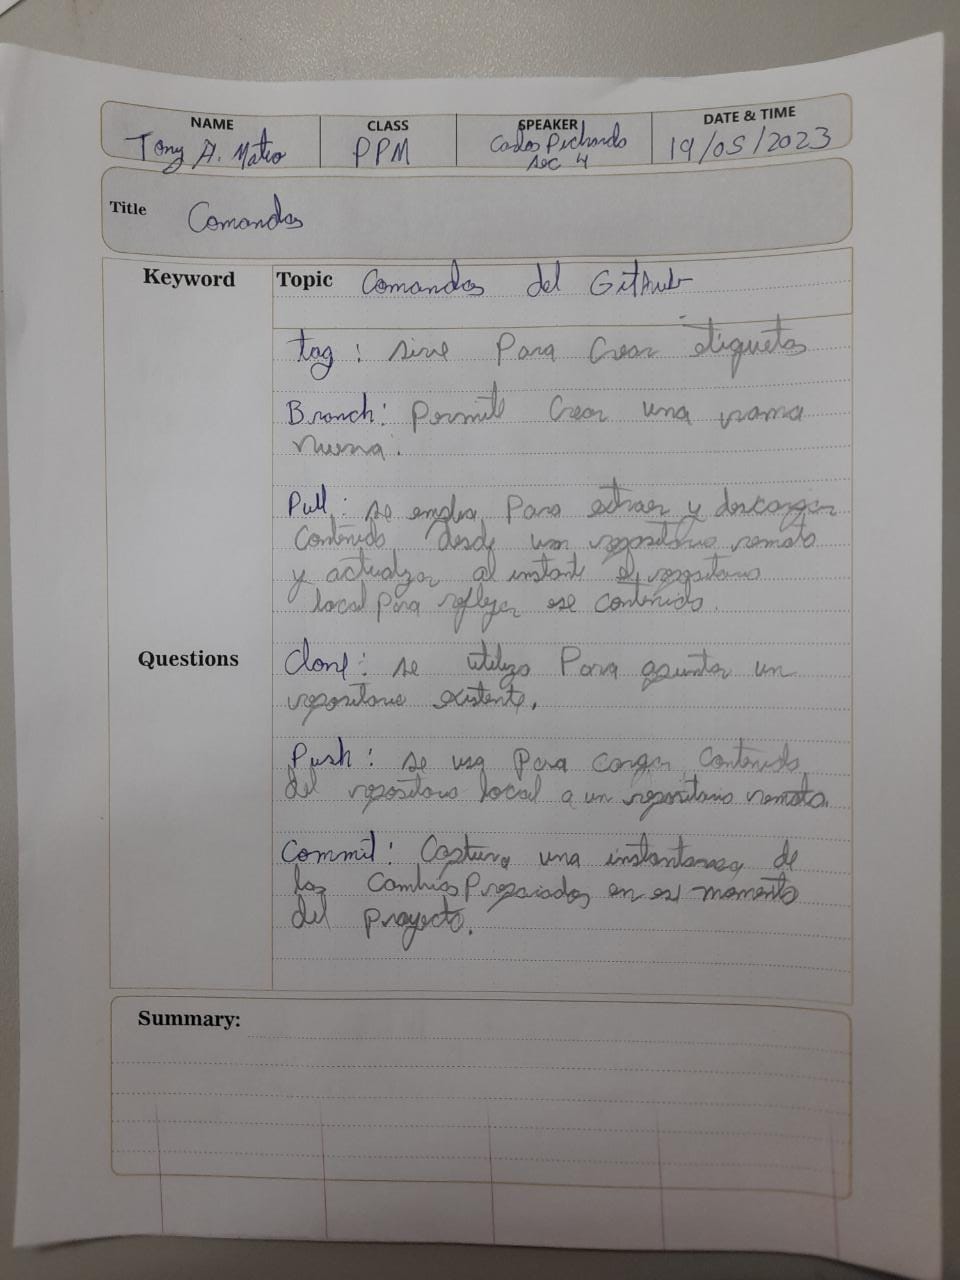 NAME CLASS SPEAKER DATE & TIME
Tony A. Mateo PPM Carlos Pichardo 19/05/2023
sec 4
Title Comandos
Keyword Topic Comandos del GitHub
tag: sirve Para Crear etiquetas
Branch: Permite Crear una rama
nueva.
Pull: se emplea Para extraer y descargar
Contenido desde un repositorio remoto
y actualizar al instante el repositorio
local para reflejar ese contenido.
Questions Clone: se utiliza Para apuntar un
repositorio existente.
Push: se usa Para cargar Contenido
del repositorio local a un repositorio remoto.
Commit: Captura una instantanea de
los Cambios Preparados en ese momento
del proyecto.
Summary: